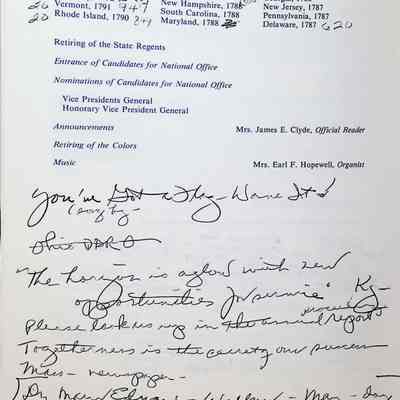 20 Vermont, 1791 947 New Hampshire, 1788 New Jersey, 1787
20 Rhode Island, 1790 824 South Carolina, 1788 Pennsylvania, 1787
Maryland, 1788 Delaware, 1787 620
Retiring of the State Regents
Entrance of Candidates for National Office
Nominations of Candidates for National Office
Vice Presidents General
Honorary Vice President General
Announcements Mrs. James E. Clyde, Official Reader
Retiring of the Colors
Music Mrs. Earl F. Hopewell, Organist
You've Got a Flag - Wave It!
Ohio DAR
"The horizon is aglow with new
opportunities for service" Ky-
Please look us up in the annual reports
Togetherness is the secret of our success
Mass - newspaper -
Dr. Mary Edward - - May - day